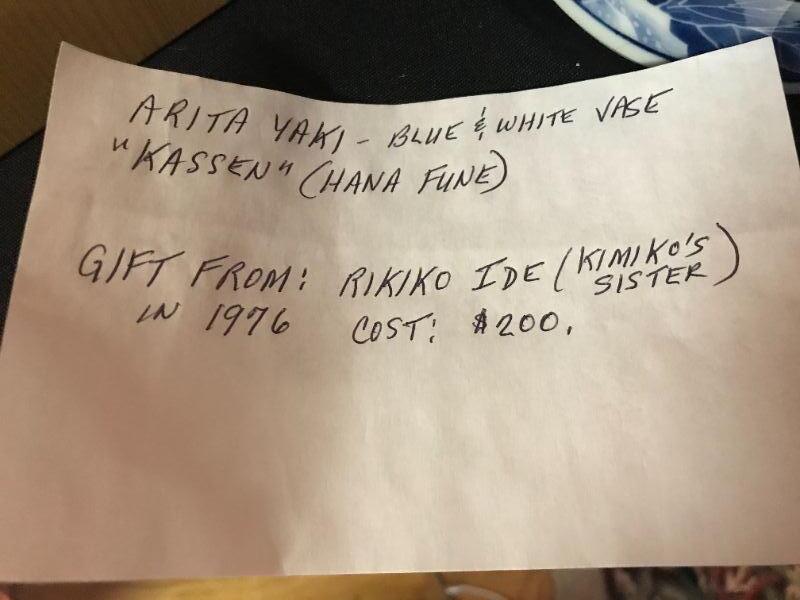 ARITA YAKI - BLUE & WHITE VASE
"KASSEN" (HANA FUNE)
GIFT FROM: RIKIKO IDE (KIMIKO'S SISTER)
IN 1976 COST: $200.